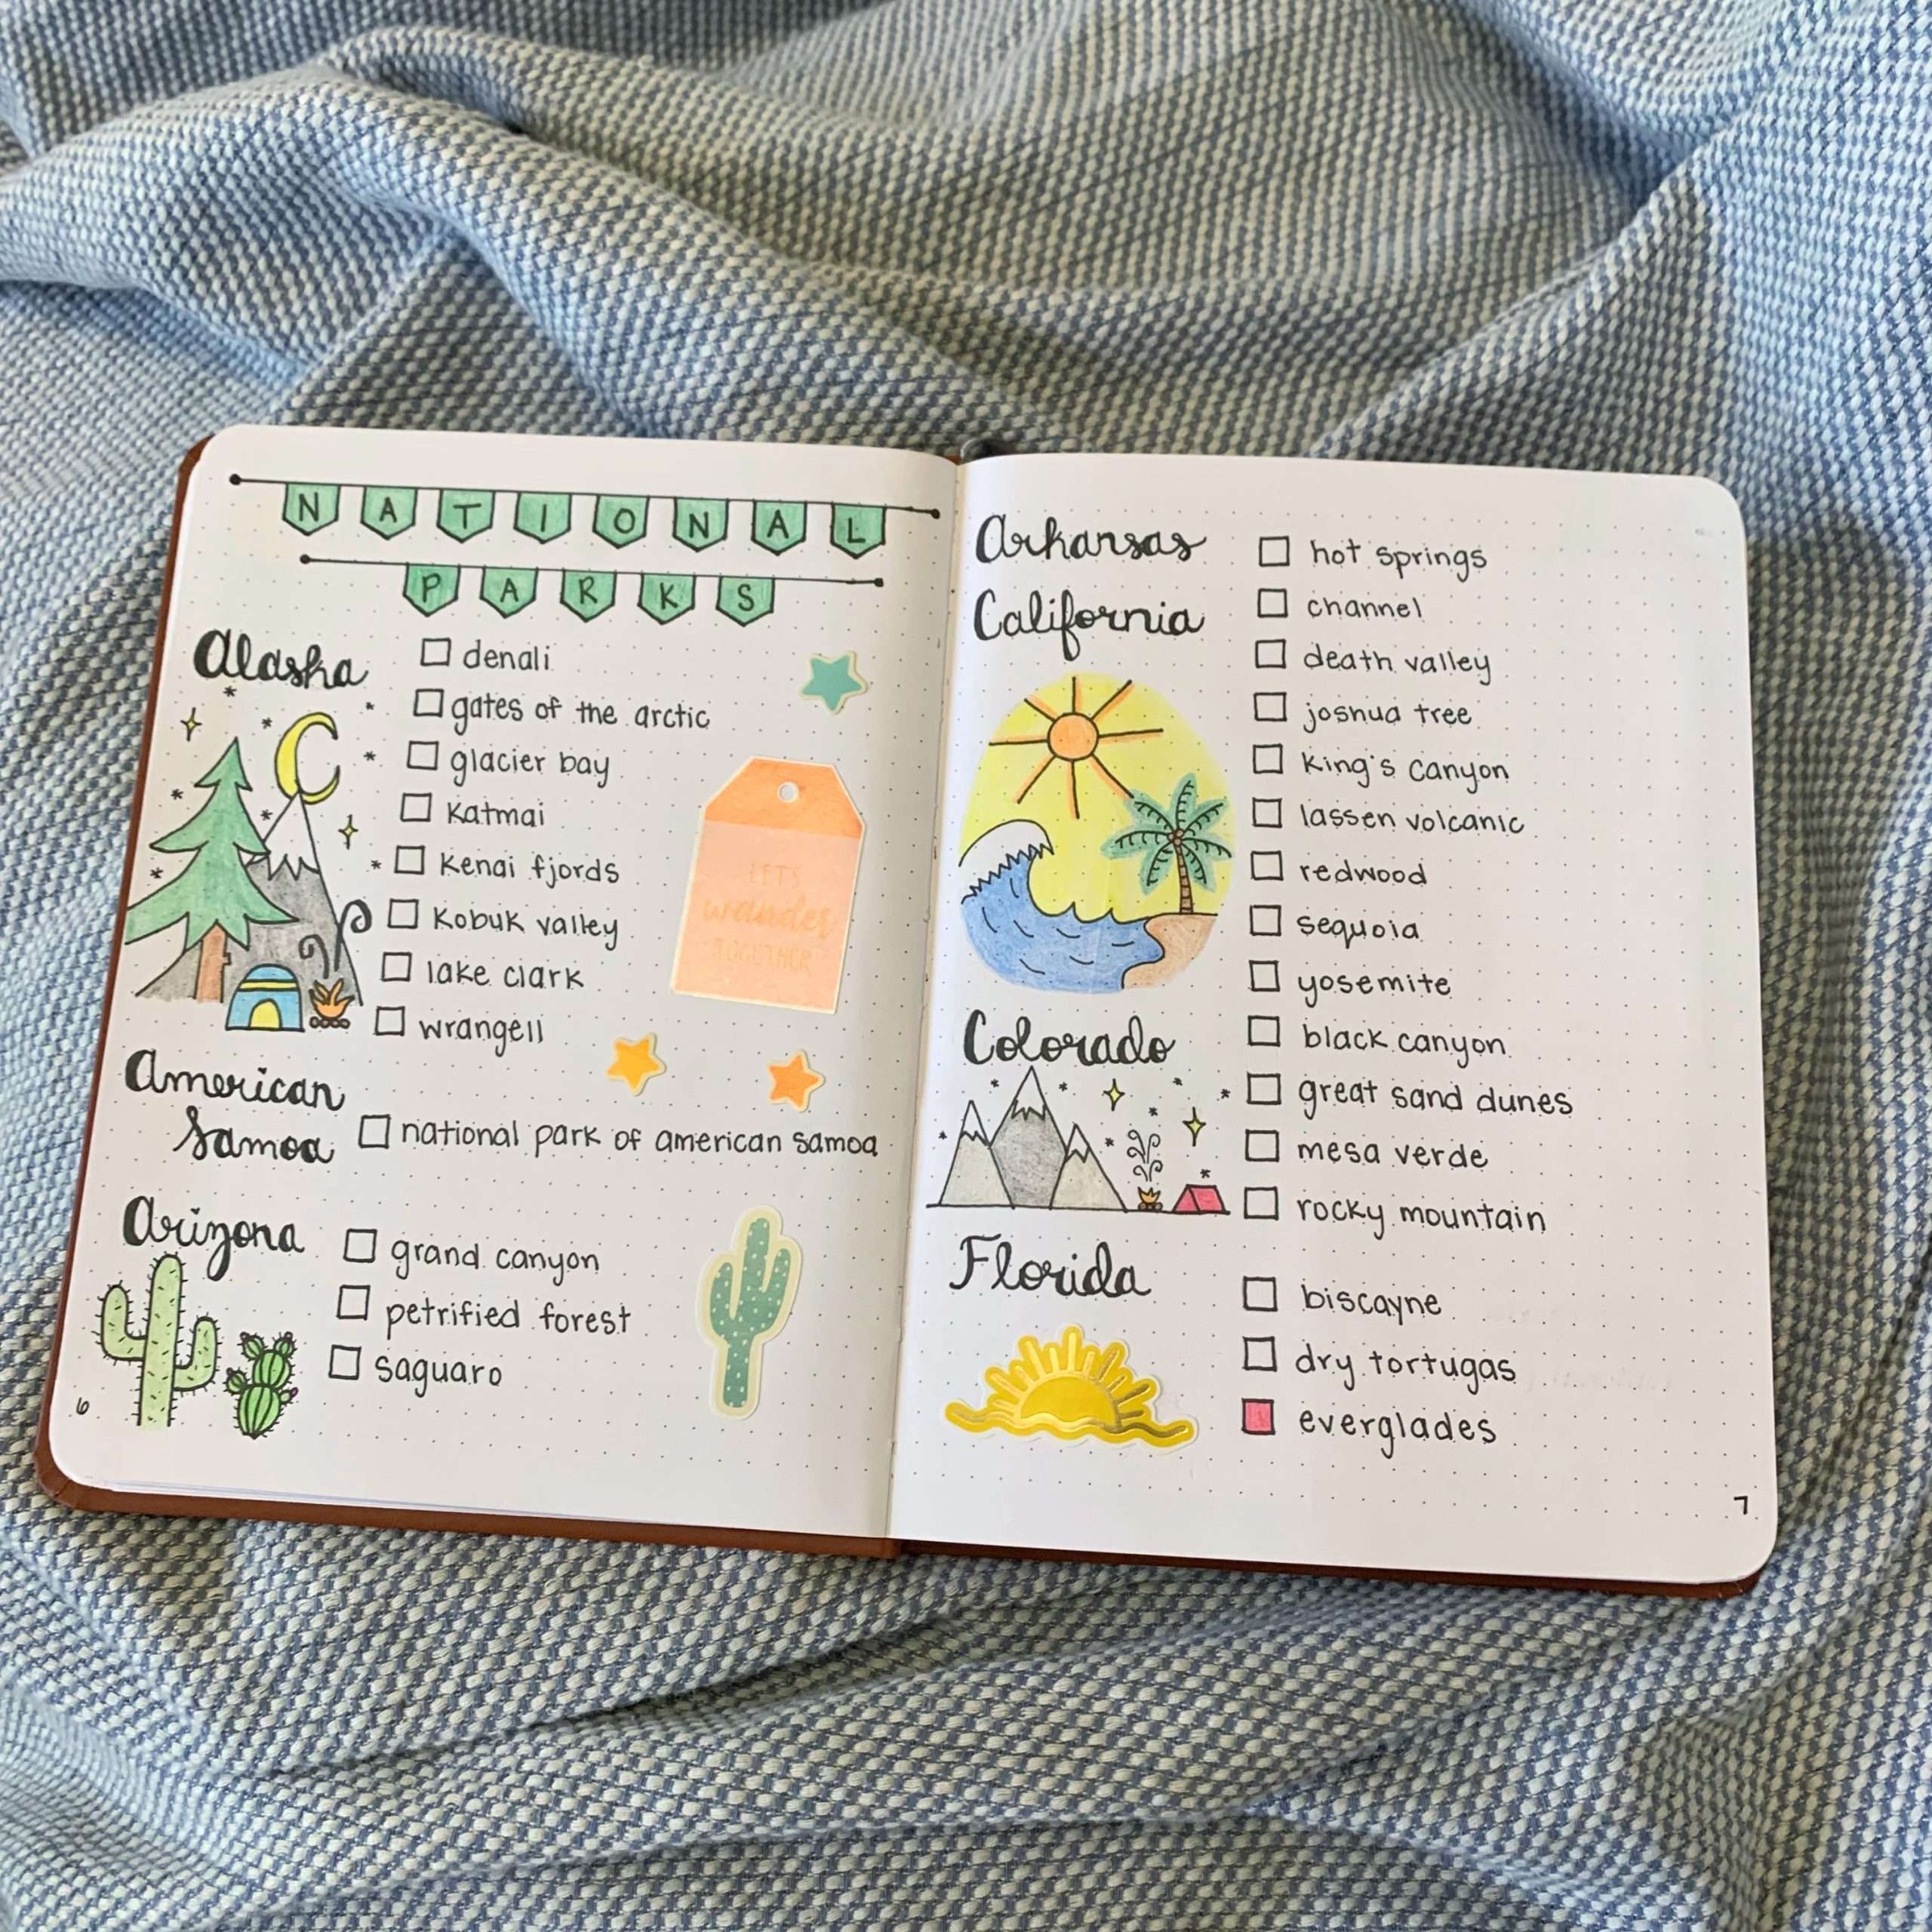 NATIONAL
PARKS
Alaska
denali
gates of the arctic
glacier bay
katmai
kenai fjords
kobuk valley
lake clark
wrangell
LET'S
wander
TOGETHER
American
Samoa
national park of american samoa
Arizona
grand canyon
petrified forest
saguaro
6
Arkansas
hot springs
California
channel
death valley
joshua tree
king's canyon
lassen volcanic
redwood
sequoia
yosemite
Colorado
black canyon
great sand dunes
mesa verde
rocky mountain
Florida
biscayne
dry tortugas
everglades
7